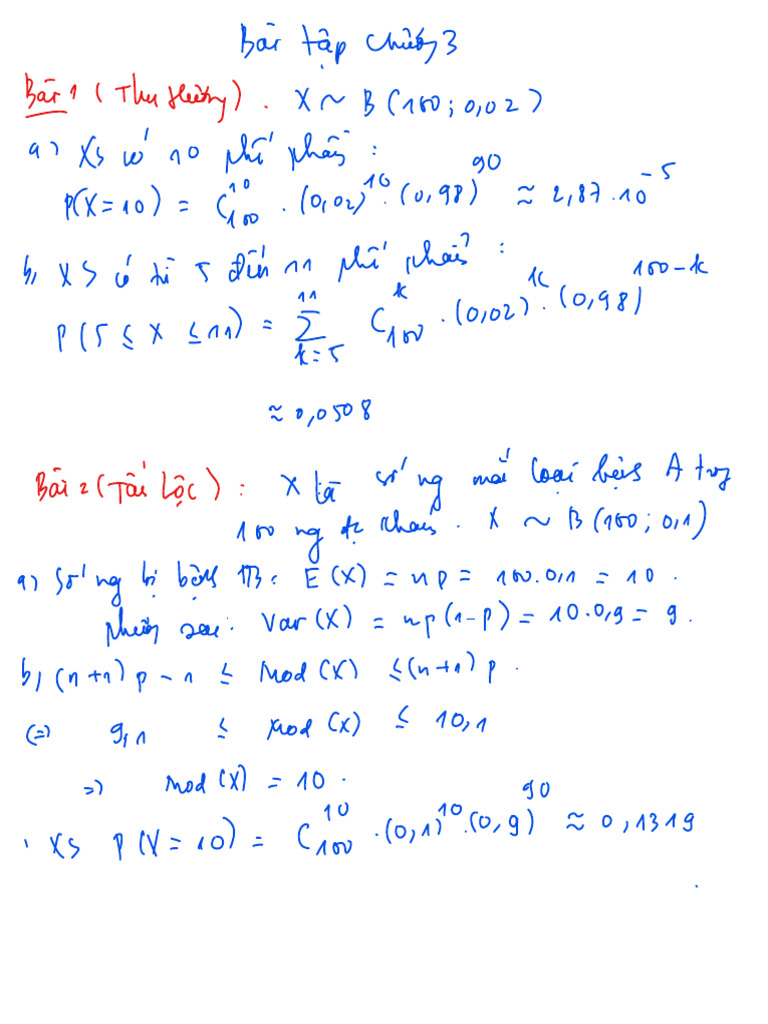 Bài tập chương 3
Bài 1 (Thu Hương). X ~ B(100; 0,02)
a) XS có 10 phế phẩm:
P(X=10) = C₁₀₀¹⁰ . (0,02)¹⁰ . (0,98)⁹⁰ ≈ 2,87.10⁻⁵
b, XS có từ 5 đến 11 phế phẩm:
P(5 ≤ X ≤ 11) = ∑ₖ₌₅¹¹ C₁₀₀ᵏ . (0,02)ᵏ . (0,98)¹⁰⁰⁻ᵏ
≈ 0,0508
Bài 2 (Tấn Lộc): X là số ng mắc loại bệnh A trg
100 ng đc khám. X ~ B(100; 0,1)
a) Số ng bị bệnh TB: E(X) = np = 100.0,1 = 10.
Phương sai: Var(X) = np(1-p) = 10.0,9 = 9.
b, (n+1)p - 1 ≤ Mod(X) ≤ (n+1)p.
(=) 9,1 ≤ Mod(X) ≤ 10,1
=) Mod(X) = 10.
. XS P(X=10) = C₁₀₀¹⁰ . (0,1)¹⁰ . (0,9)⁹⁰ ≈ 0,1319